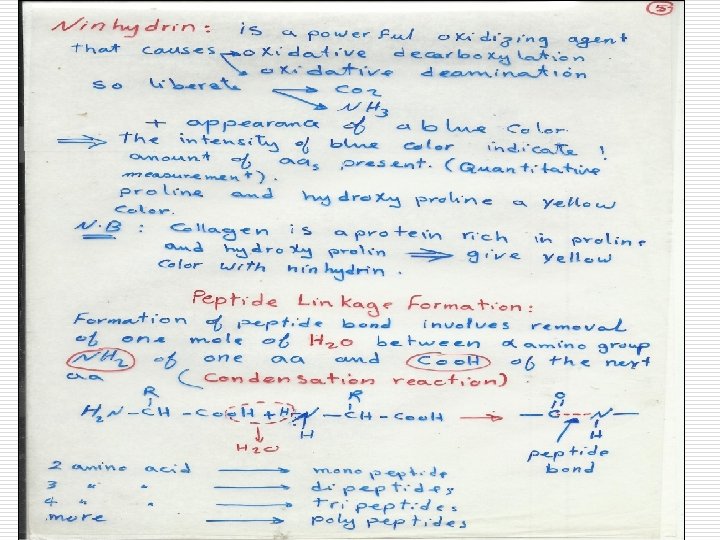 5
Ninhydrin: is a powerful oxidizing agent
that causes → oxidative decarboxylation
oxidative deamination
so liberate CO2
NH3
+ appearance of a blue color.
⟹ The intensity of blue color indicate !
amount of aas present. (Quantitative
measurement).
proline and hydroxy proline a yellow
color.
N.B : Collagen is a protein rich in proline
and hydroxy prolin ⟹ give yellow
color with ninhydrin.
Peptide Linkage Formation:
Formation of peptide bond involves removal
of one mole of H2O between α amino group
NH2 of one aa and COOH of the next
aa (Condensation reaction)
R R O
H2N-CH-COOH + H-N-CH-COOH → -C---N-
H H
H2O peptide
bond
2 amino acid → mono peptide
3 " " → dipeptides
4 " " → tripeptides
more → poly peptides